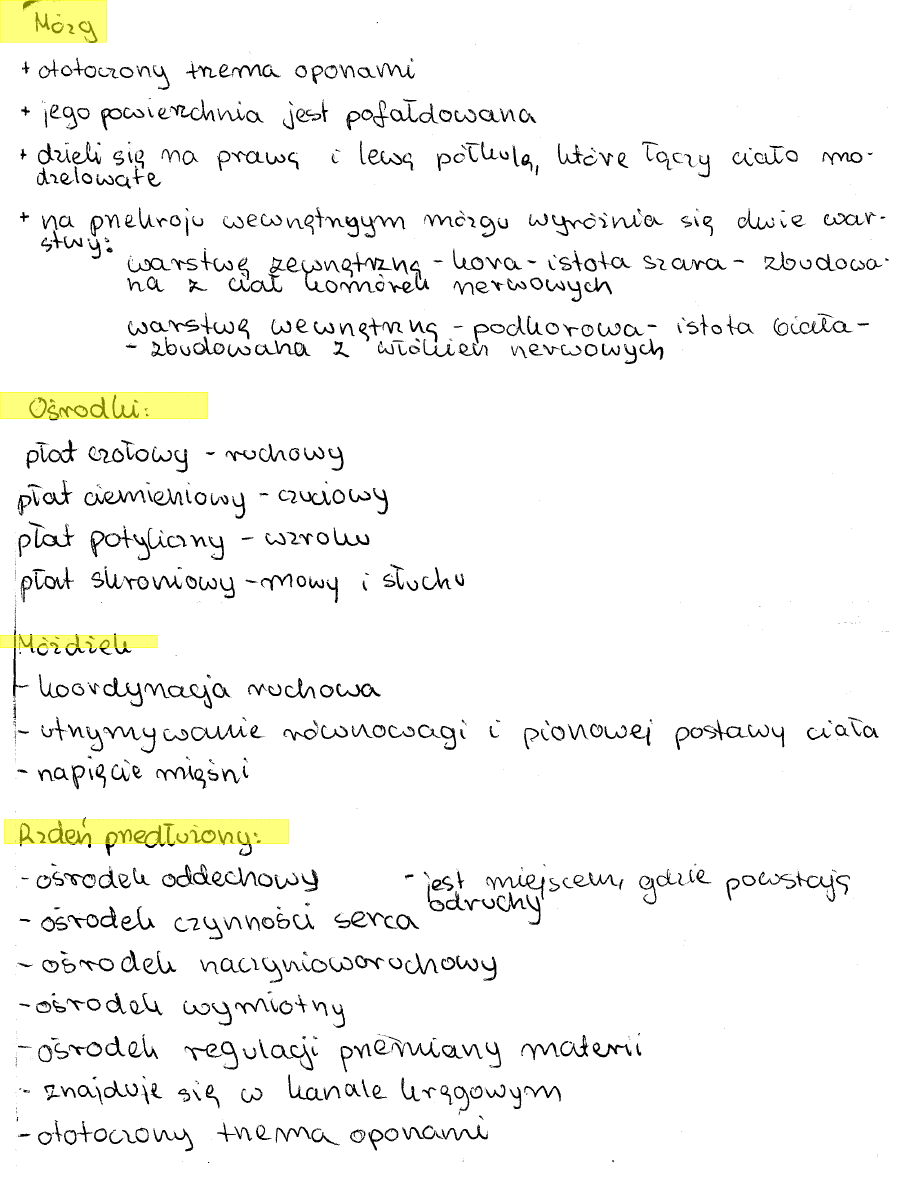 Mózg
+ ototoczony trzema oponami
+ jego powierzchnia jest pofałdowana
+ dzieli się na prawą i lewą półkulą, które łączy ciało mo-
dzelowate
+ na przekroju wewnętrzgym mózgu wyróżnia się dwie war-
stwy:
warstwę zewnętrzną - kora - istota szara - zbudowa-
na z ciał komórek nerwowych
warstwę wewnętrzną - podkorowa - istota biała -
- zbudowana z włókien nerwowych
Ośrodki:
płat czołowy - ruchowy
płat ciemieniowy - czuciowy
płat potyliczny - wzroku
płat skroniowy - mowy i słuchu
Móżdżek
- koordynacja ruchowa
- utrzymywanie równowagi i pionowej postawy ciała
- napięcie mięśni
Rdzeń przedłużony:
- ośrodek oddechowy
- jest miejscem, gdzie powstają
odruchy
- ośrodek czynności serca
- ośrodek naczynioworuchowy
- ośrodek wymiotny
- ośrodek regulacji przemiany materii
- znajduje się w kanale kręgowym
- ototoczony trzema oponami